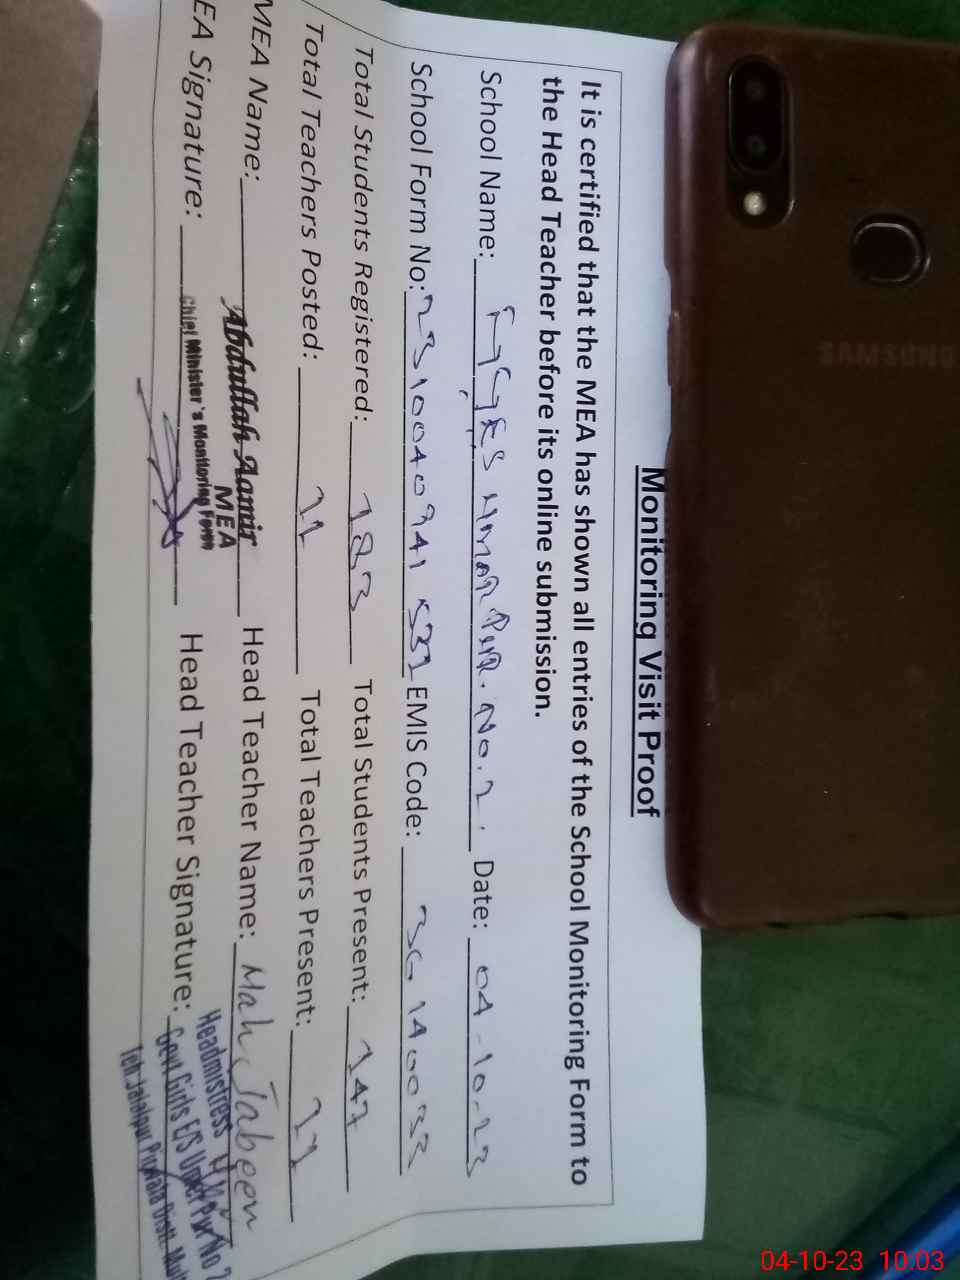 Monitoring Visit Proof
It is certified that the MEA has shown all entries of the School Monitoring Form to
the Head Teacher before its online submission.
School Name: No. 2. Date: 04-10-23
School Form No: EMIS Code:
Total Students Registered: 183 Total Students Present: 147
Total Teachers Posted: 11 Total Teachers Present: 11
MEA Name: Abdullah Aamir Head Teacher Name: Mah Jabeen
MEA
EA Signature: Head Teacher Signature:
Chief Minister's Monitoring Force
Headmistress
Govt Girls E/S Umer Pur No 2
Teh Jalalpur Pirwala Distt. Mul
SAMSUNG
04-10-23 10:03